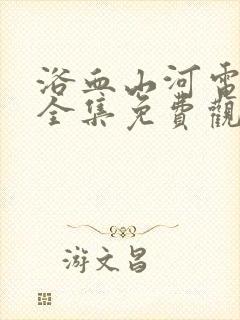 浴血山河電
全集免費觀
游文昌